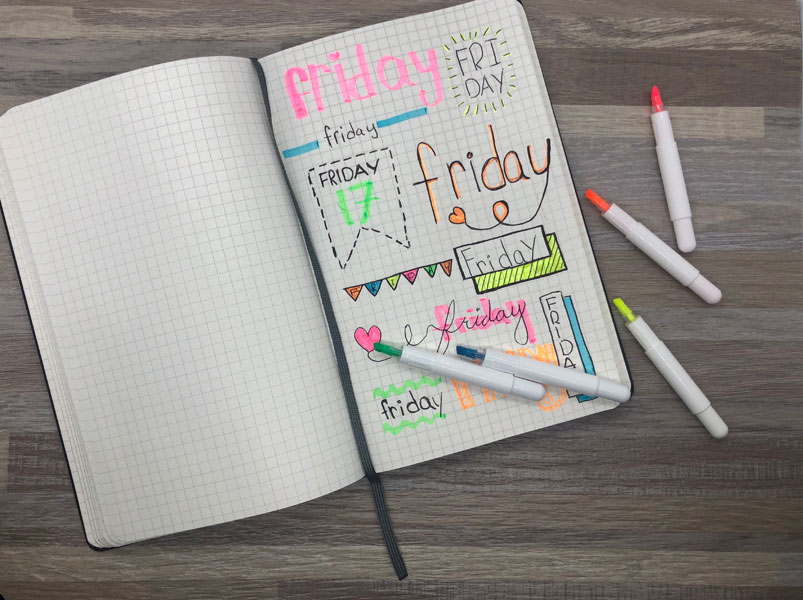 friday
FRI
DAY
friday
FRIDAY
17
friday
Friday
FRIDAY
friday
FRIDA
friday